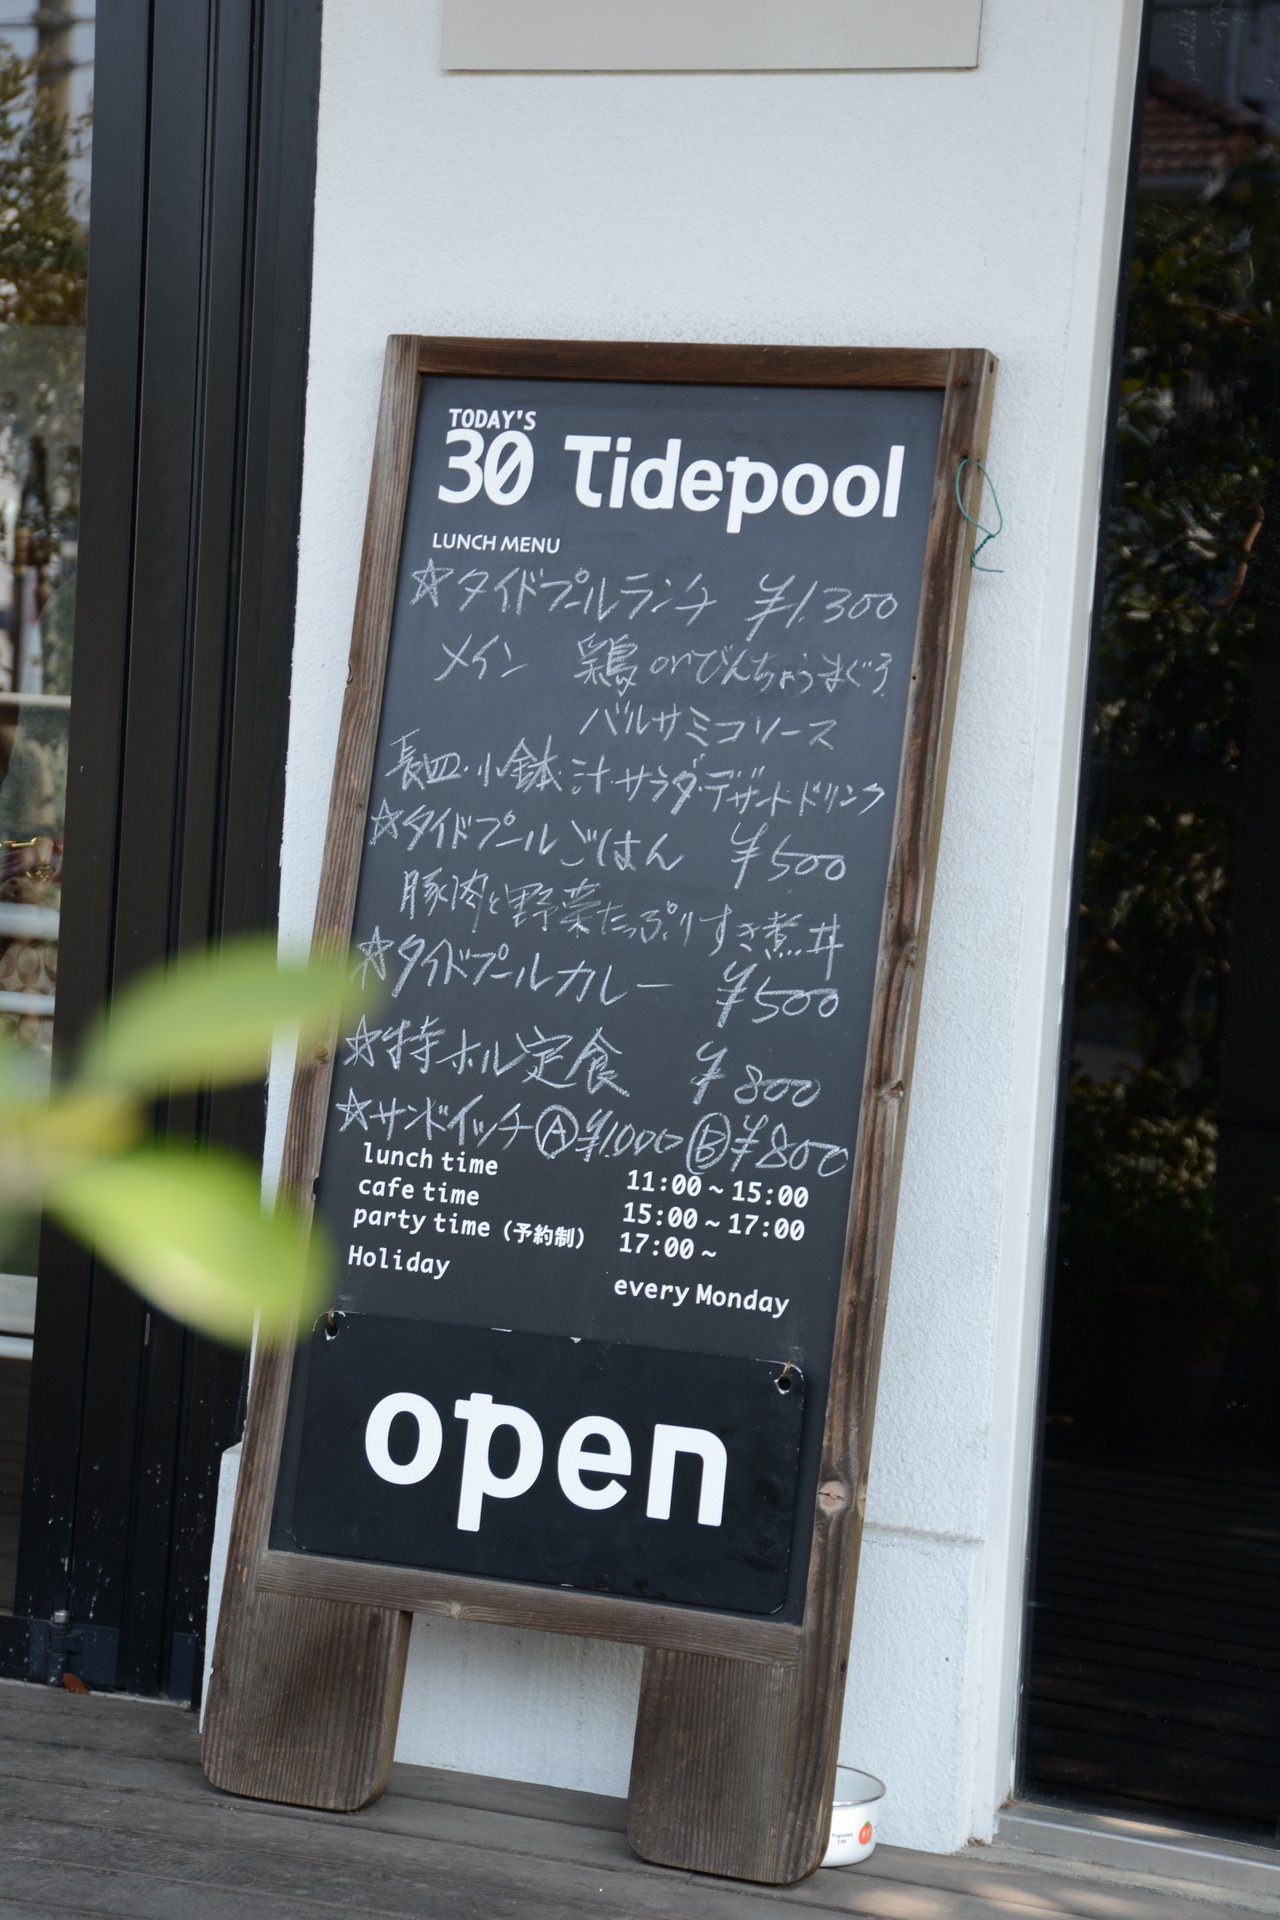 TODAY'S
30 Tidepool
LUNCH MENU
☆タイドプールランチ ¥1,300
メイン 鶏orびんちょうまぐろ
バルサミコソース
長皿・小鉢・汁・サラダ・デザート・ドリンク
☆タイドプールごはん ¥500
豚肉と野菜たっぷりすき煮丼
☆タイドプールカレー ¥500
☆特ホル定食 ¥800
☆サンドイッチⒶ¥1,000 Ⓑ¥800
lunch time 11:00~15:00
cafe time 15:00~17:00
party time (予約制) 17:00~
Holiday every Monday
open
Vegetable
Life